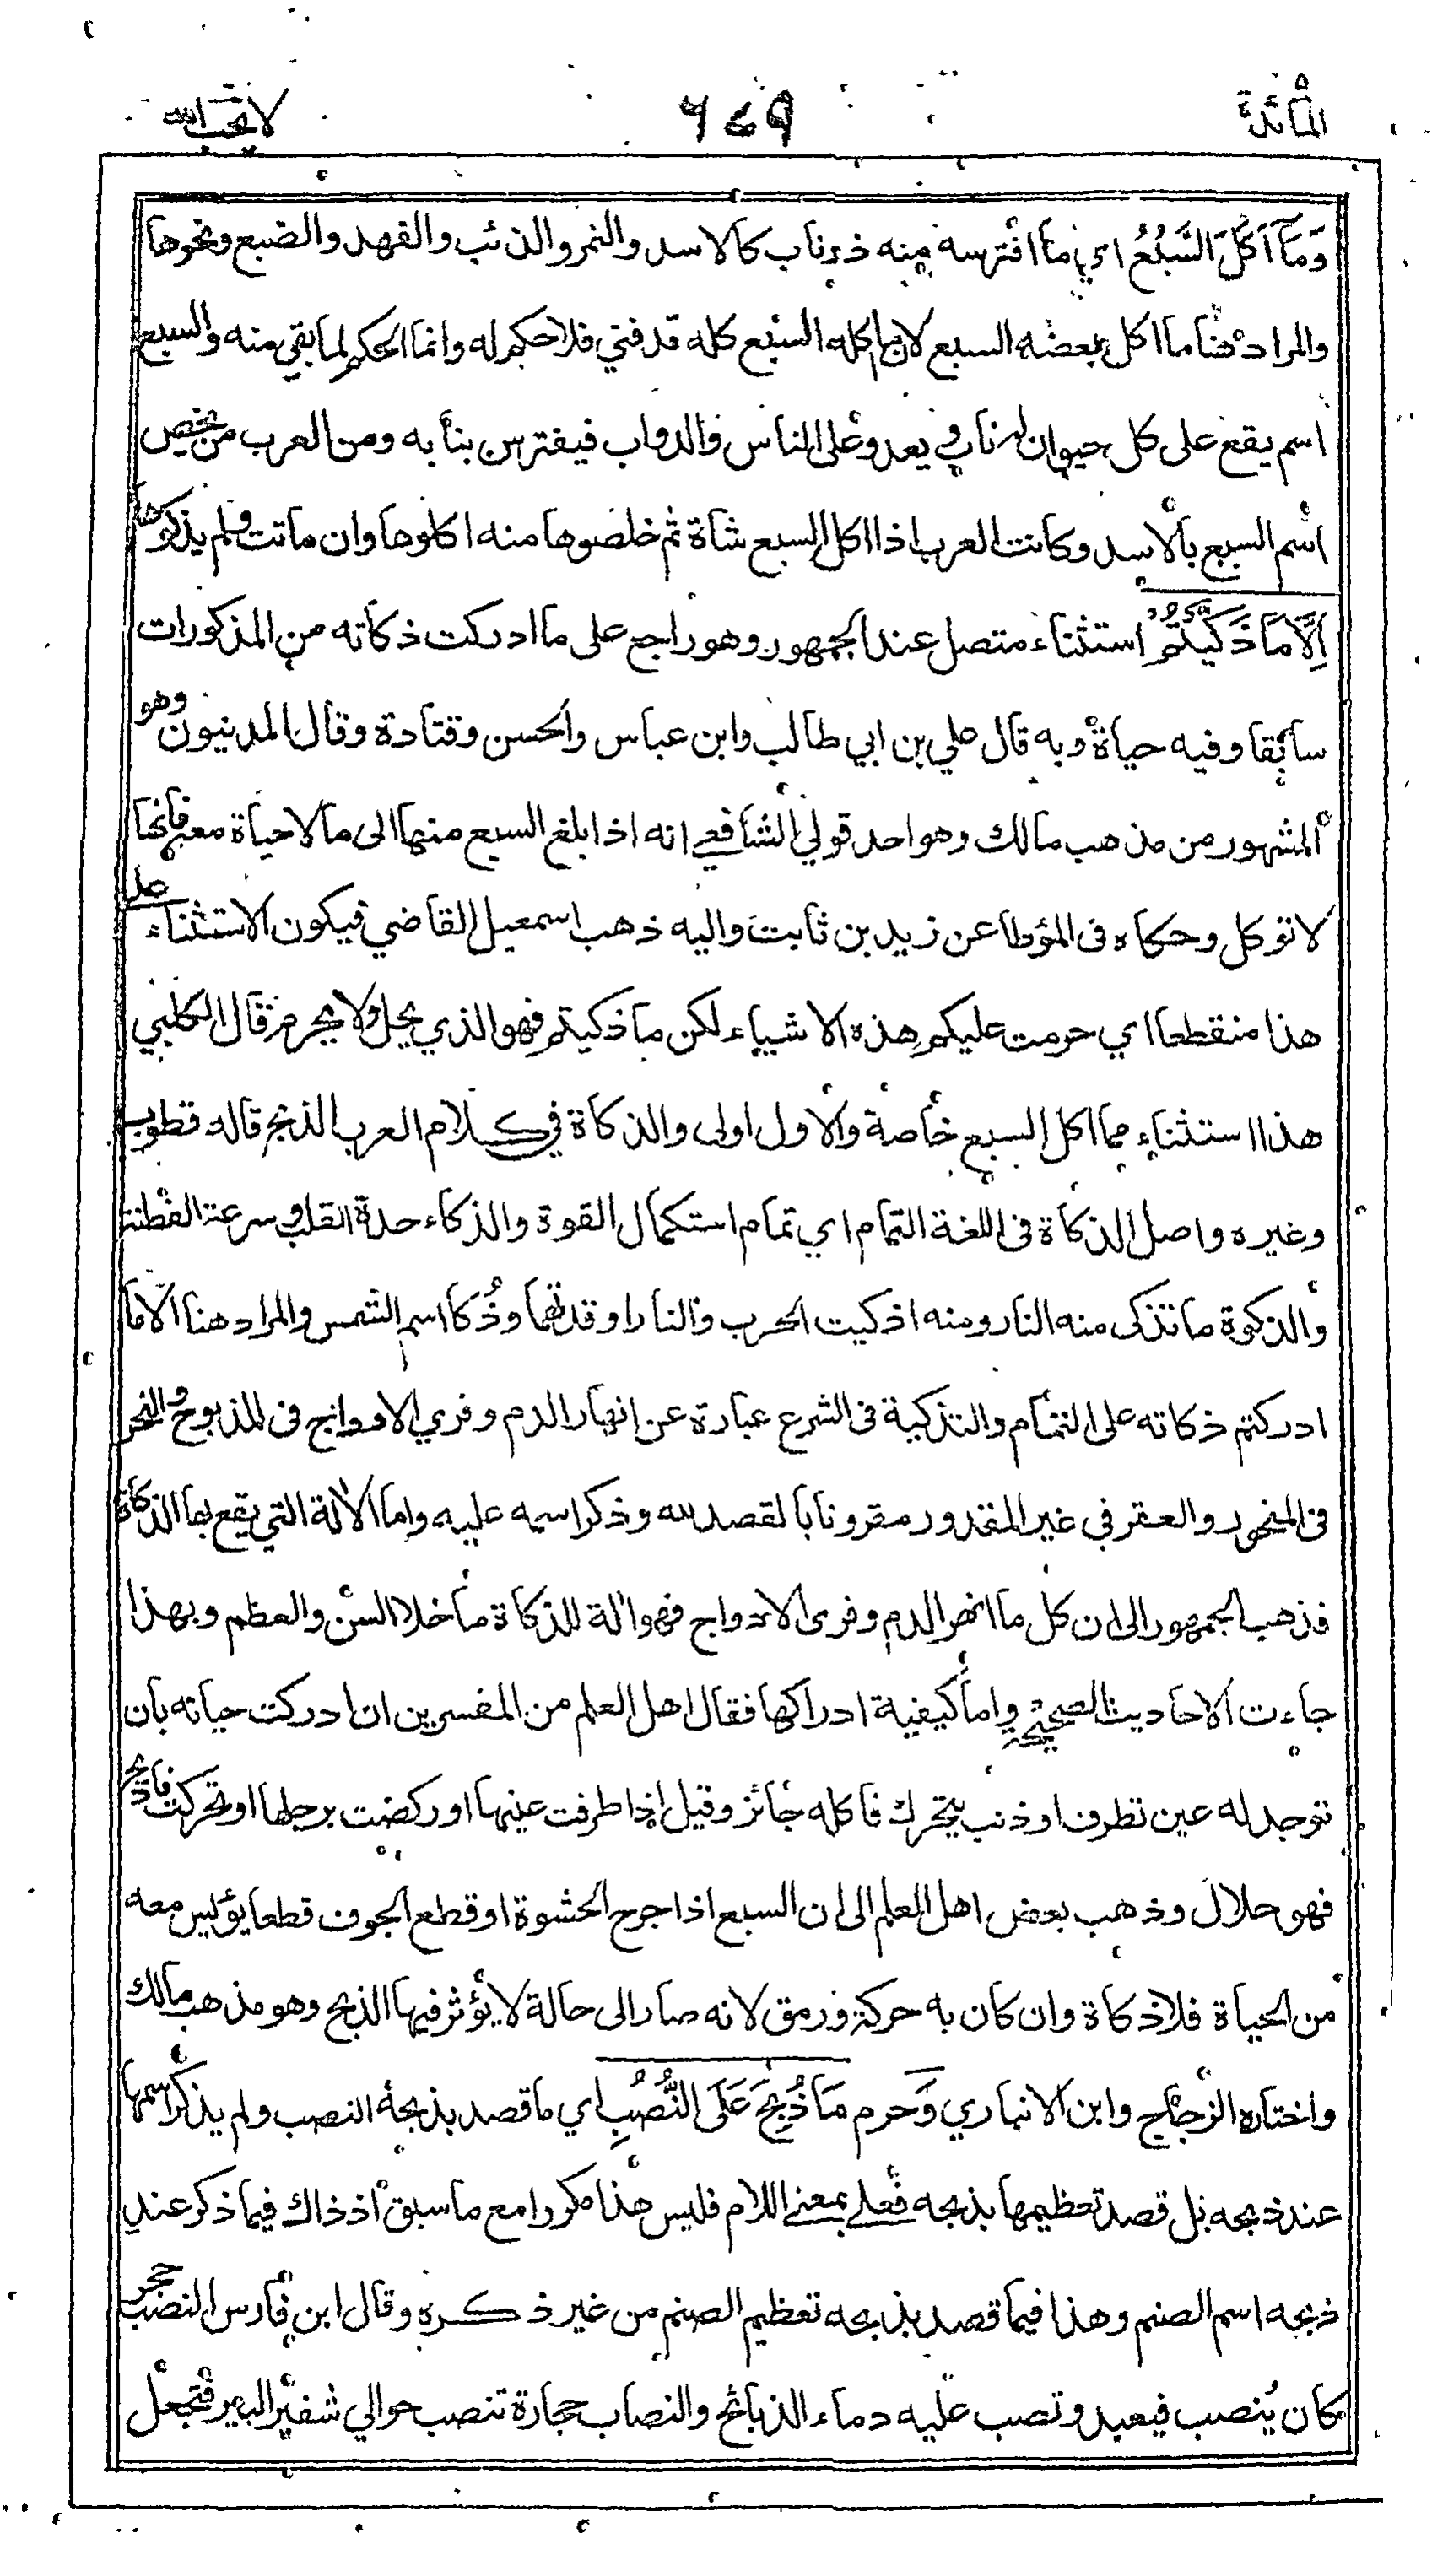 المائدة ٤٦٩ لا يحب الله
وَمَآ اَكَلَ السَّبُعُ اي ما افترسه منه ذو ناب كالاسد والنمر والذئب والفهد والضبع ونحوها
والمراد هنا ما اكل بعضه السبع لان ما اكله السبع كله قد فني فلا حكم له وانما الحكم لما بقي منه والسبع
اسم يقع على كل حيوان له ناب ويعدو على الناس والدواب فيفترس بنابه ومن العرب من يخص
اسم السبع بالاسد وكانت العرب اذا اكل السبع شاة ثم خلصوها منه اكلوها وان ماتت ولم يذكوها
اِلَّا مَا ذَكَّيْتُمْ استثناء متصل عند الجمهور وهو راجع على ما ادركت ذكاته من المذكورات
سابقا وفيه حياة وبه قال علي بن ابي طالب وابن عباس والحسن وقتادة وقال المدنيون وهو
المشهور من مذهب مالك وهو احد قولي الشافعي انه اذا بلغ السبع منها الى ما لا حياة معه فانها
لا توكل وحكاه فى المؤطا عن زيد بن ثابت واليه ذهب اسمعيل القاضي فيكون الاستثناء على
هذا منقطعا اي حرمت عليكم هذه الاشياء لكن ما ذكيتم فهو الذي يحل ولا يحرم قال الكلبي
هذا استثناء مما اكل السبع خاصة والاول اولى والذكاة في كلام العرب الذبح قاله قطرب
وغيره واصل الذكاة فى اللغة التمام اي تمام استكمال القوة والذكاء حدة القلب وسرعة الفطنة
والذكوة ما تذكى منه النار ومنه اذكيت الحرب والنار اوقدتهما وذُكا اسم الشمس والمراد هنا الا ما
ادركتم ذكاته على التمام والتذكية فى الشرع عبارة عن انهار الدم وفري الاوداج فى المذبوح والنحر
فى المنحور والعقر في غير المقدور مقرونا بالقصد لله وذكر اسمه عليه واما الآلة التي يقع بها الذكاة
فذهب الجمهور الى ان كل ما انهر الدم وفرى الاوداج فهو الة للذكاة ما خلا السن والعظم وبهذا
جاءت الاحاديث الصحيحة واما كيفية ادراكها فقال اهل العلم من المفسرين ان ادركت حياته بان
توجد له عين تطرف او ذنب يتحرك فاكله جائز وقيل اذا طرفت عينها او ركضت برجلها او تحركت فاذبح
فهو حلال وذهب بعض اهل العلم الى ان السبع اذا جرح الحشوة او قطع الجوف قطعا يؤيس معه
من الحياة فلا ذكاة وان كان به حركة ورمق لانه صار الى حالة لا يؤثر فيها الذبح وهو مذهب مالك
واختاره الزجاج وابن الانباري وَحرم مَا ذُبِحَ عَلَى النُّصُبِ اي ما قصد بذبحه النصب ولم يذكر اسمها
عند ذبحه بل قصد تعظيمها بذبحه فعلى بمعنى اللام فليس هذا مكررا مع ما سبق اذ ذاك فيما ذكر عند
ذبحه اسم الصنم وهذا فيما قصد بذبحه تعظيم الصنم من غير ذكره وقال ابن فارس النصب حجر
كان يُنصب فيعبد وتصب عليه دماء الذبائح والنصاب حجارة تنصب حوالي شفير البير فتجعل